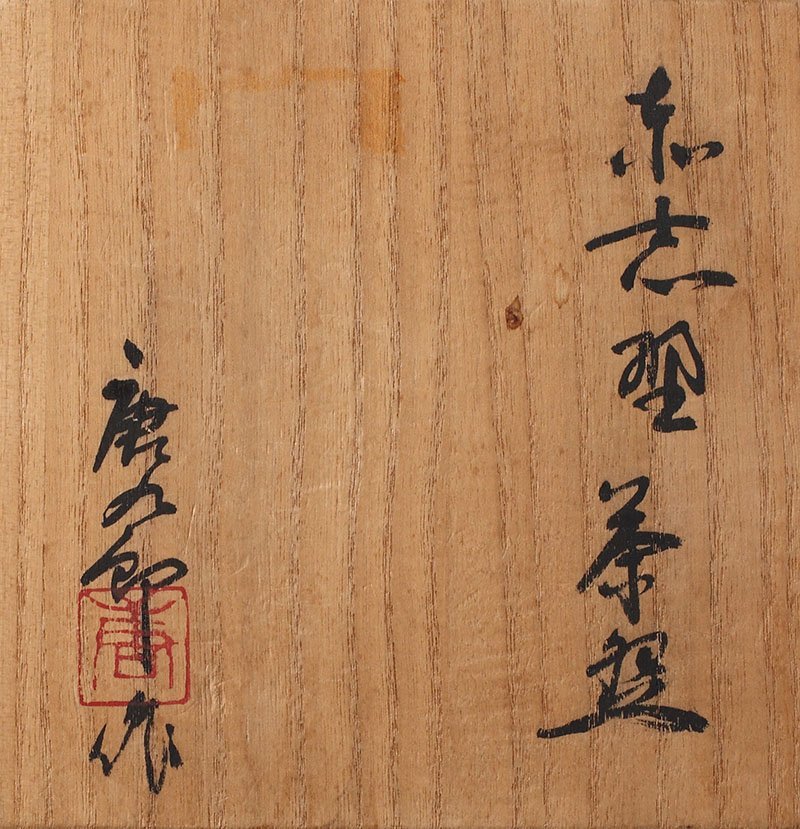 赤志野 茶盌
唐九郎 作
唐